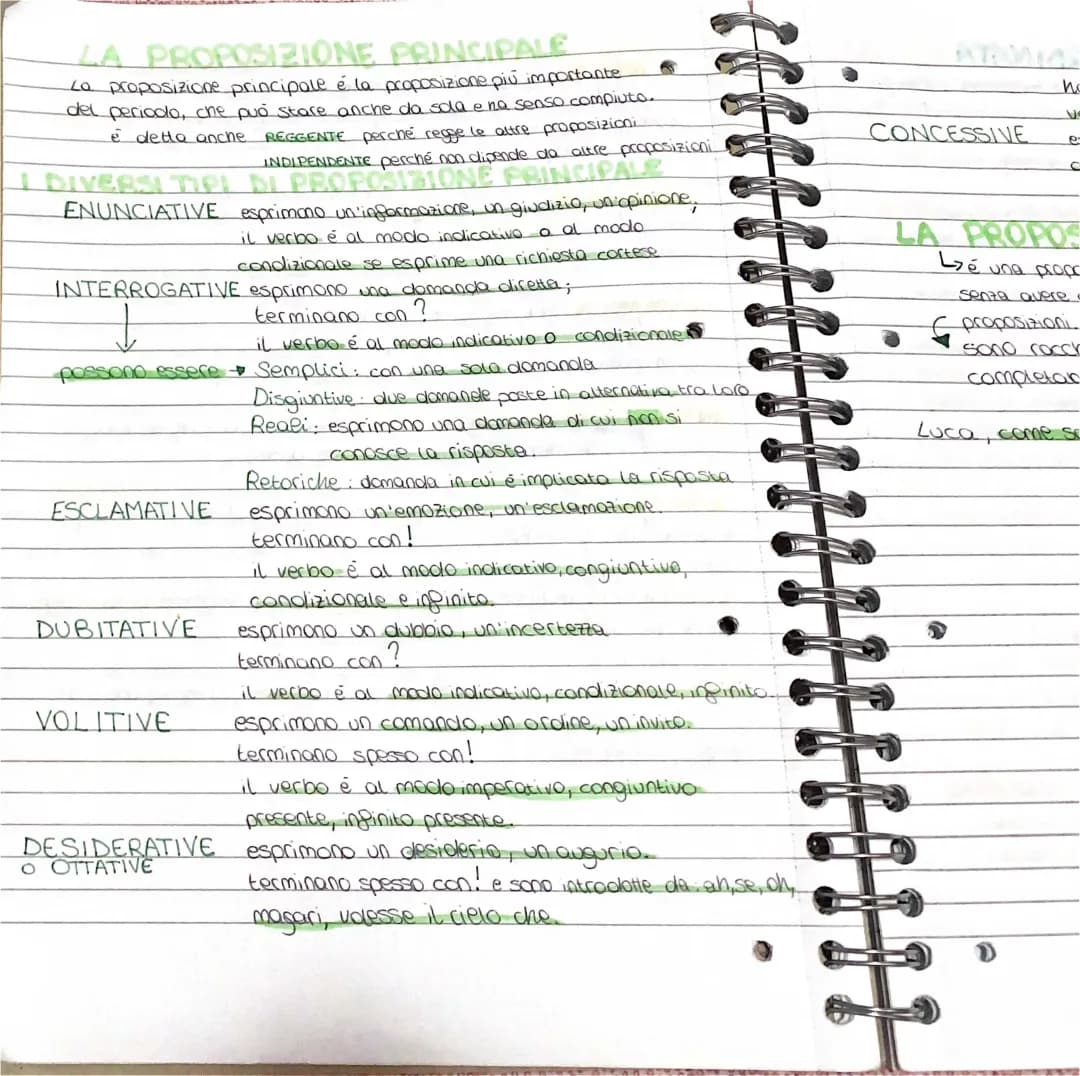 LA PROPOSIZIONE PRINCIPALE
La proposizione principale é la proposizione piú importante
del periodo, che puó stare anche da sola e ha senso compiuto.
é detta anche REGGENTE perché regge le altre proposizioni
INDIPENDENTE perché non dipende da altre proposizioni
I DIVERSI TIPI DI PROPOSIZIONE PRINCIPALE
ENUNCIATIVE esprimono un'informazione, un giudizio, un'opinione,
il verbo é al modo indicativo o al modo
condizionale se esprime una richiesta cortese
INTERROGATIVE esprimono una domanda diretta;
terminano con ?
il verbo é al modo indicativo o condizionale
possono essere → Semplici: con una sola domanda
Disgiuntive: due domande poste in alternativa tra loro
Reali: esprimono una domanda di cui non si
conosce la risposta.
Retoriche: domanda in cui é implicata la risposta
ESCLAMATIVE esprimono un'emozione, un'esclamazione.
terminano con!
il verbo é al modo indicativo, congiuntivo,
condizionale e infinito.
DUBITATIVE esprimono un dubbio, un'incertezza
terminano con ?
il verbo é al modo indicativo, condizionale, infinito.
VOLITIVE esprimono un comando, un ordine, un invito.
terminano spesso con!
il verbo é al modo imperativo, congiuntivo
presente, infinito presente.
DESIDERATIVE o OTTATIVE esprimono un desiderio, un augurio.
terminano spesso con! e sono introdotte da: ah, se, oh,
magari, volesse il cielo che.
CONCESSIVE
LA PROPOS
↳é una propo
senza avere
proposizioni.
sono racch
completar
Luca, come s